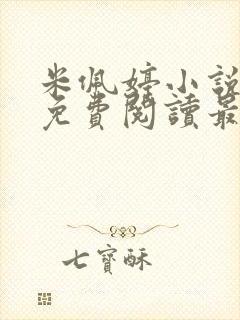 米佩婷小說
免費閱讀最
七寶酥